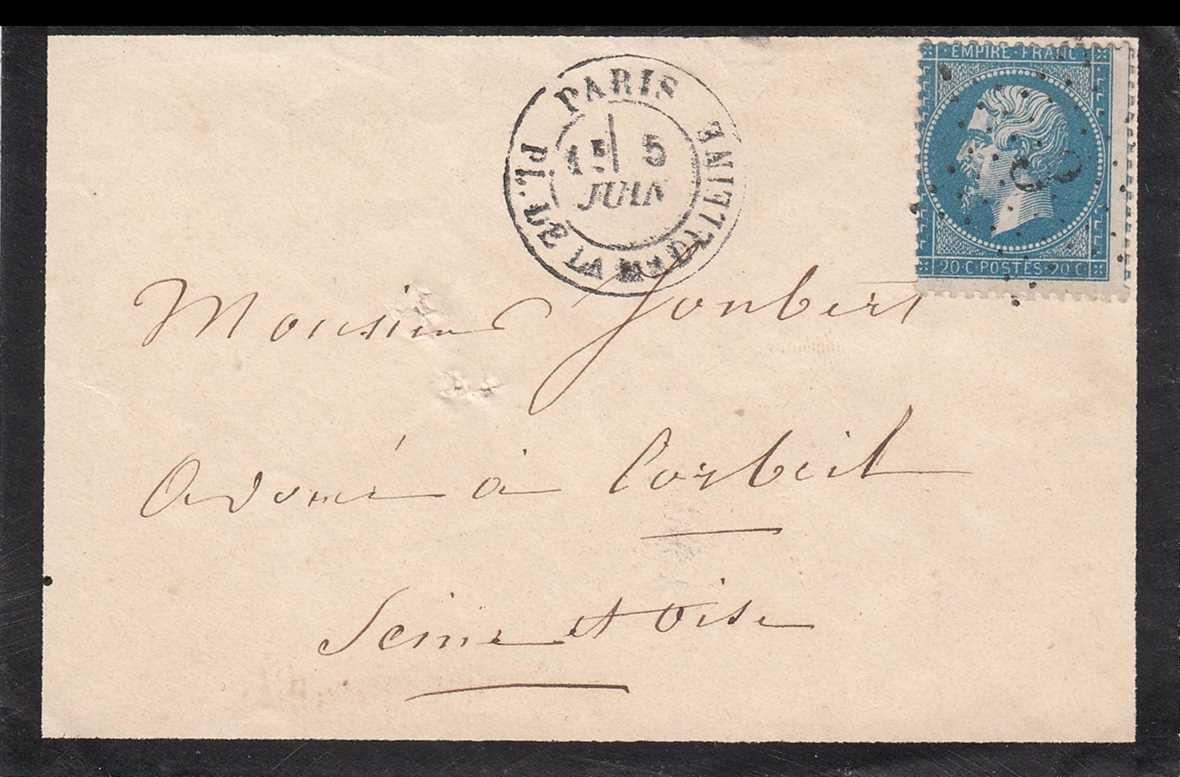 PARIS
5
JUIN
PL. DE LA MADELEINE
EMPIRE FRANC
20 C POSTES 20 C
Monsieur Joubert
Avoué à Corbeil
Seine et Oise